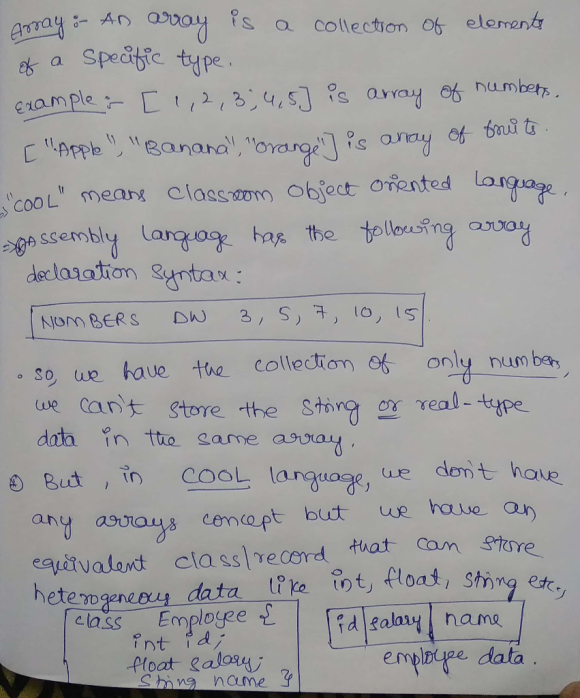 Array :- An array is a collection of elements
of a specific type.
Example :- [ 1, 2, 3, 4, 5] is array of numbers.
["Apple", "Banana", "Orange"] is array of fruits.
"COOL" means Classroom Object Oriented Language.
⇒ Assembly language has the following array
declaration Syntax:
NUMBERS DW 3, 5, 7, 10, 15
• So, we have the collection of only numbers,
we can't store the string or real-type
data in the same array.
But, in COOL language, we don't have
any arrays concept but we have an
equivalent class/record that can store
heterogeneous data like int, float, string etc.,
class Employee {
int id;
float salary;
String name }
id salary name
employee data.